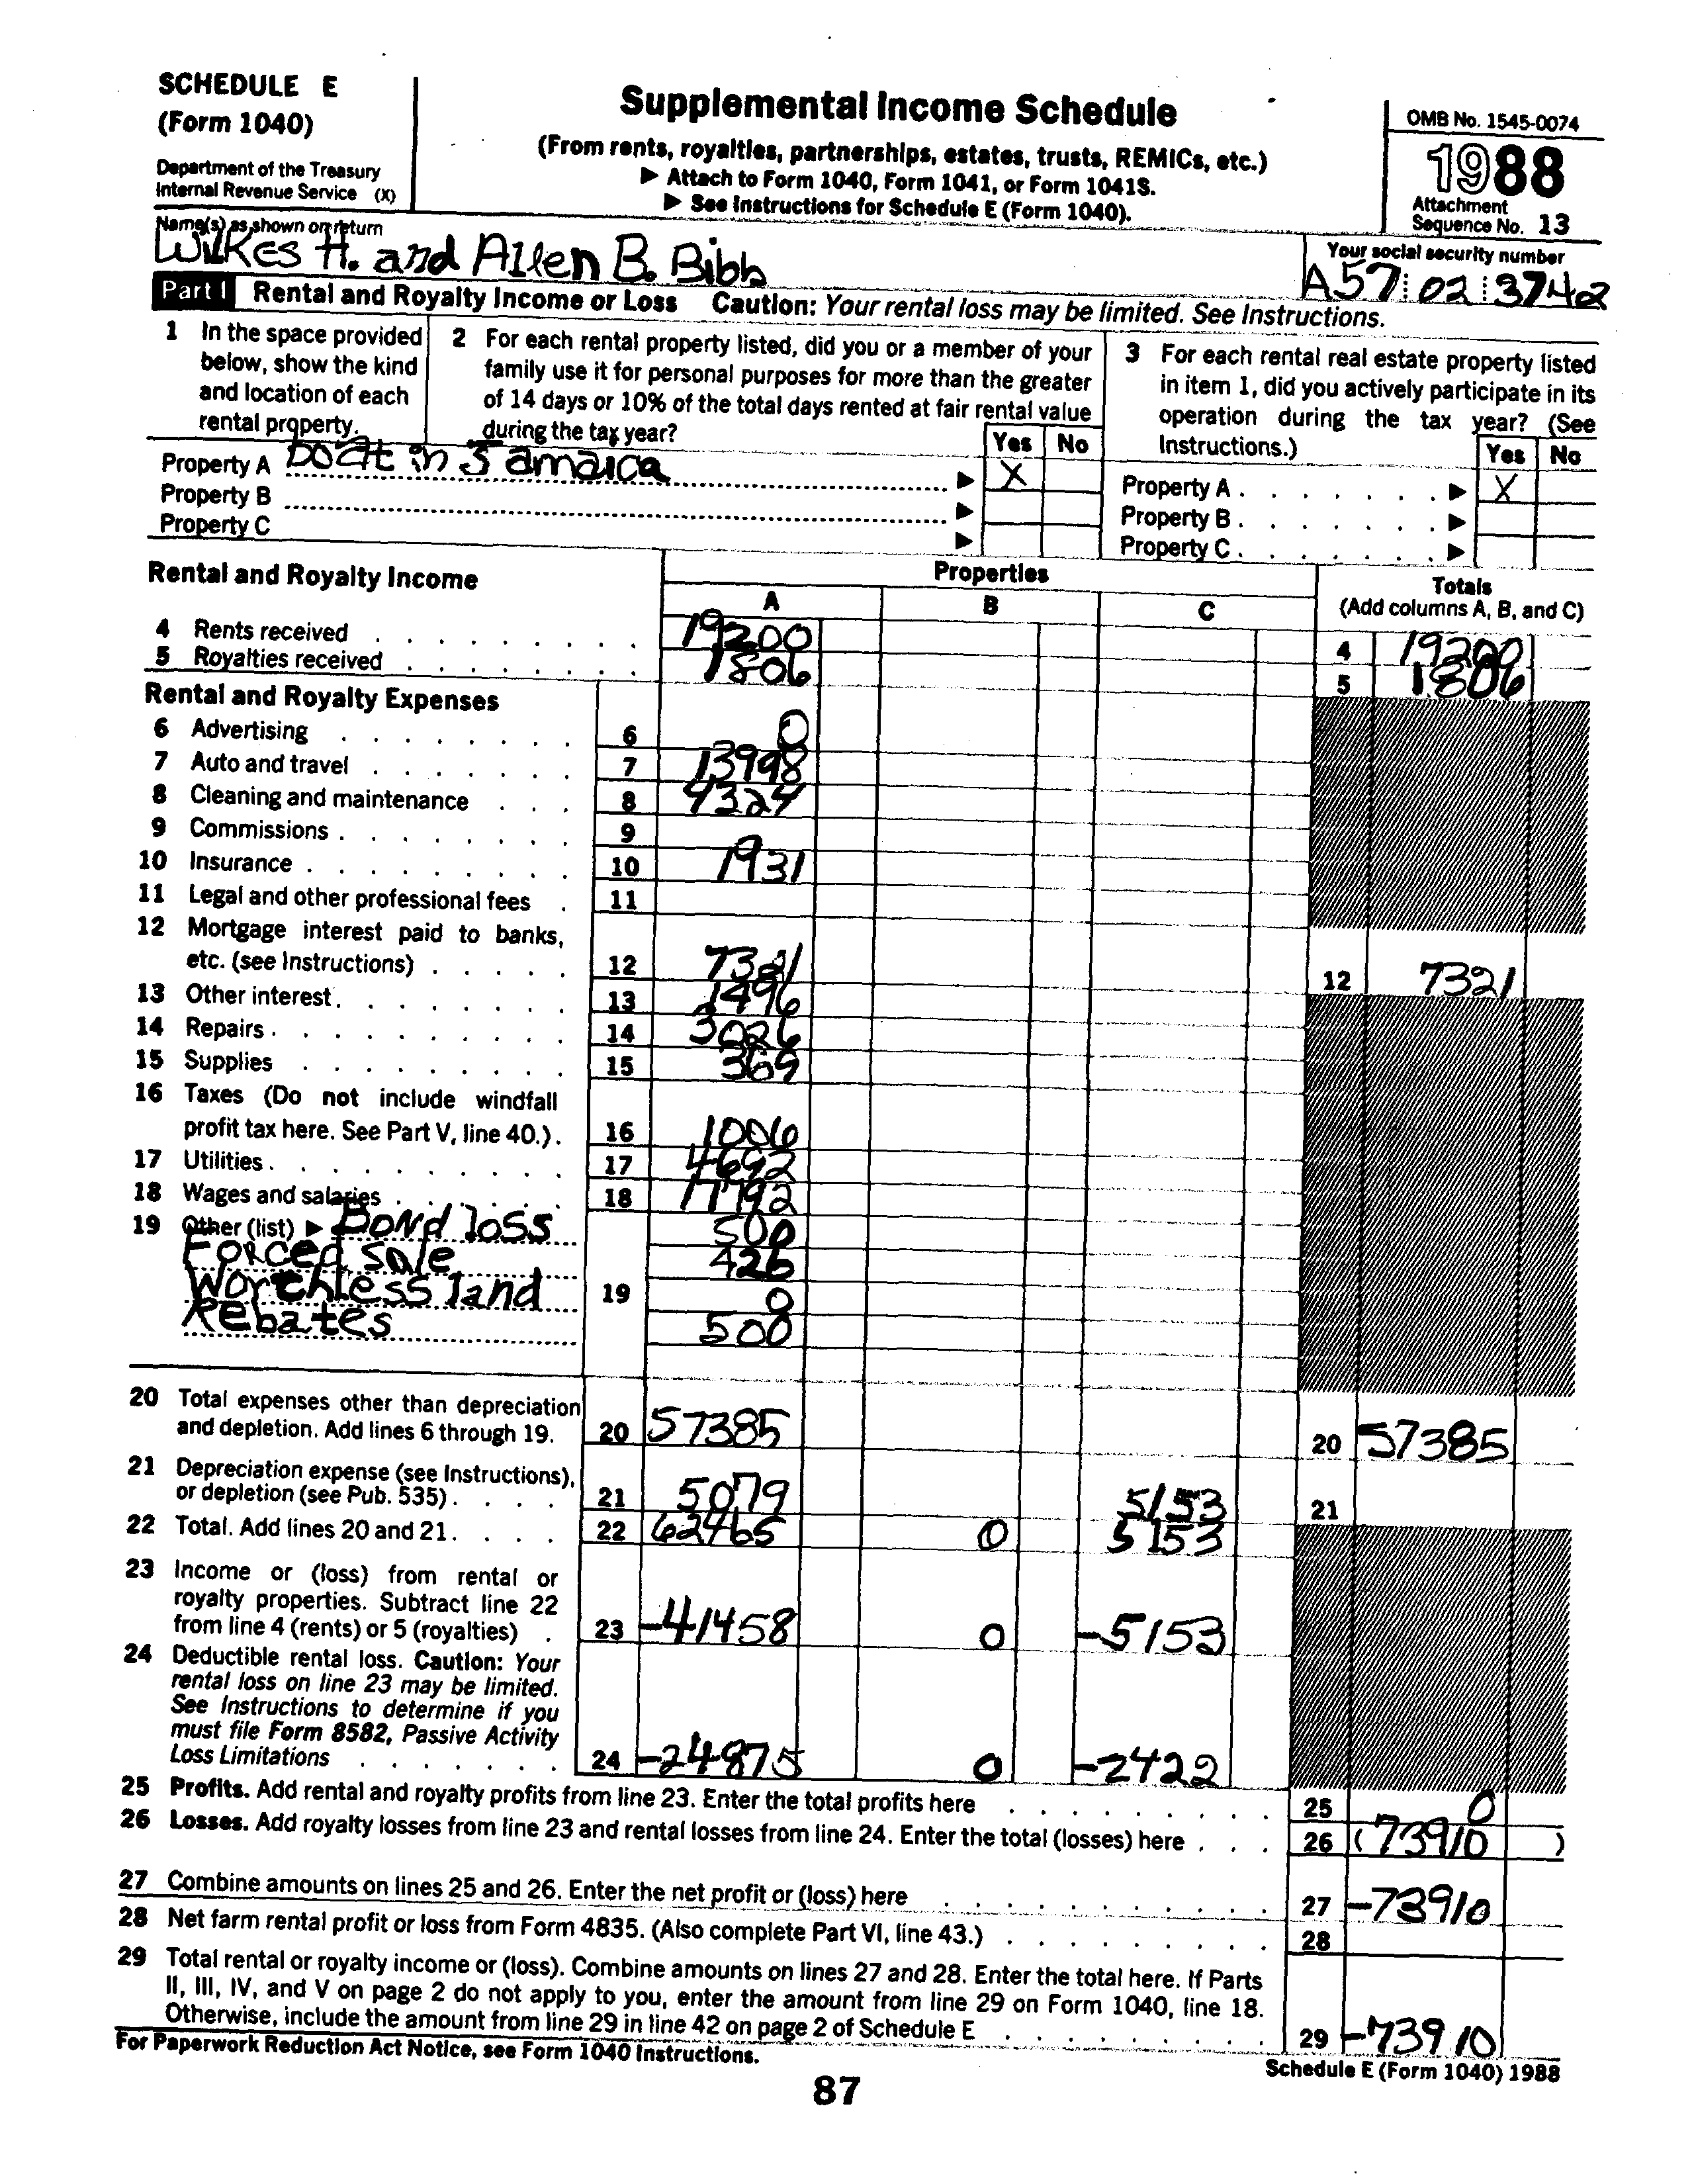 SCHEDULE E
(Form 1040)
Department of the Treasury
Internal Revenue Service (X)
Supplemental Income Schedule
(From rents, royalties, partnerships, estates, trusts, REMICs, etc.)
▶ Attach to Form 1040, Form 1041, or Form 1041S.
▶ See Instructions for Schedule E (Form 1040).
OMB No. 1545-0074
1988
Attachment
Sequence No. 13
Name(s) as shown on return
Wilkes H. and Allen B. Bibb
Your social security number
A57 02 3742
Part I Rental and Royalty Income or Loss Caution: Your rental loss may be limited. See Instructions.
1 In the space provided
below, show the kind
and location of each
rental property.
2 For each rental property listed, did you or a member of your
family use it for personal purposes for more than the greater
of 14 days or 10% of the total days rented at fair rental value
during the tax year?
Yes No
3 For each rental real estate property listed
in item 1, did you actively participate in its
operation during the tax year? (See
Instructions.)
Yes No
Property A Boat in Jamaica ▶ X
Property B ▶
Property C ▶
Property A ▶ X
Property B ▶
Property C ▶
Rental and Royalty Income
Properties
A B C
Totals
(Add columns A, B, and C)
4 Rents received 19200 4 19200
5 Royalties received 1806 5 1806
Rental and Royalty Expenses
6 Advertising 6 0
7 Auto and travel 7 13998
8 Cleaning and maintenance 8 4324
9 Commissions 9
10 Insurance 10 1931
11 Legal and other professional fees 11
12 Mortgage interest paid to banks,
etc. (see Instructions) 12 7321 12 7321
13 Other interest 13 1496
14 Repairs 14 3026
15 Supplies 15 369
16 Taxes (Do not include windfall
profit tax here. See Part V, line 40.) 16 1006
17 Utilities 17 4692
18 Wages and salaries 18 17792
19 Other (list) ▶ Bond loss 500
Forced sale 426
Worthless land 19 0
Rebates 500
20 Total expenses other than depreciation
and depletion. Add lines 6 through 19. 20 57385 20 57385
21 Depreciation expense (see Instructions),
or depletion (see Pub. 535) 21 5079 5153 21
22 Total. Add lines 20 and 21 22 62465 0 5153
23 Income or (loss) from rental or
royalty properties. Subtract line 22
from line 4 (rents) or 5 (royalties) 23 -41458 0 -5153
24 Deductible rental loss. Caution: Your
rental loss on line 23 may be limited.
See Instructions to determine if you
must file Form 8582, Passive Activity
Loss Limitations 24 -24875 0 -2422
25 Profits. Add rental and royalty profits from line 23. Enter the total profits here 25 0
26 Losses. Add royalty losses from line 23 and rental losses from line 24. Enter the total (losses) here 26 (73910)
27 Combine amounts on lines 25 and 26. Enter the net profit or (loss) here 27 -73910
28 Net farm rental profit or loss from Form 4835. (Also complete Part VI, line 43.) 28
29 Total rental or royalty income or (loss). Combine amounts on lines 27 and 28. Enter the total here. If Parts
II, III, IV, and V on page 2 do not apply to you, enter the amount from line 29 on Form 1040, line 18.
Otherwise, include the amount from line 29 in line 42 on page 2 of Schedule E 29 -73910
For Paperwork Reduction Act Notice, see Form 1040 Instructions.
Schedule E (Form 1040) 1988
87